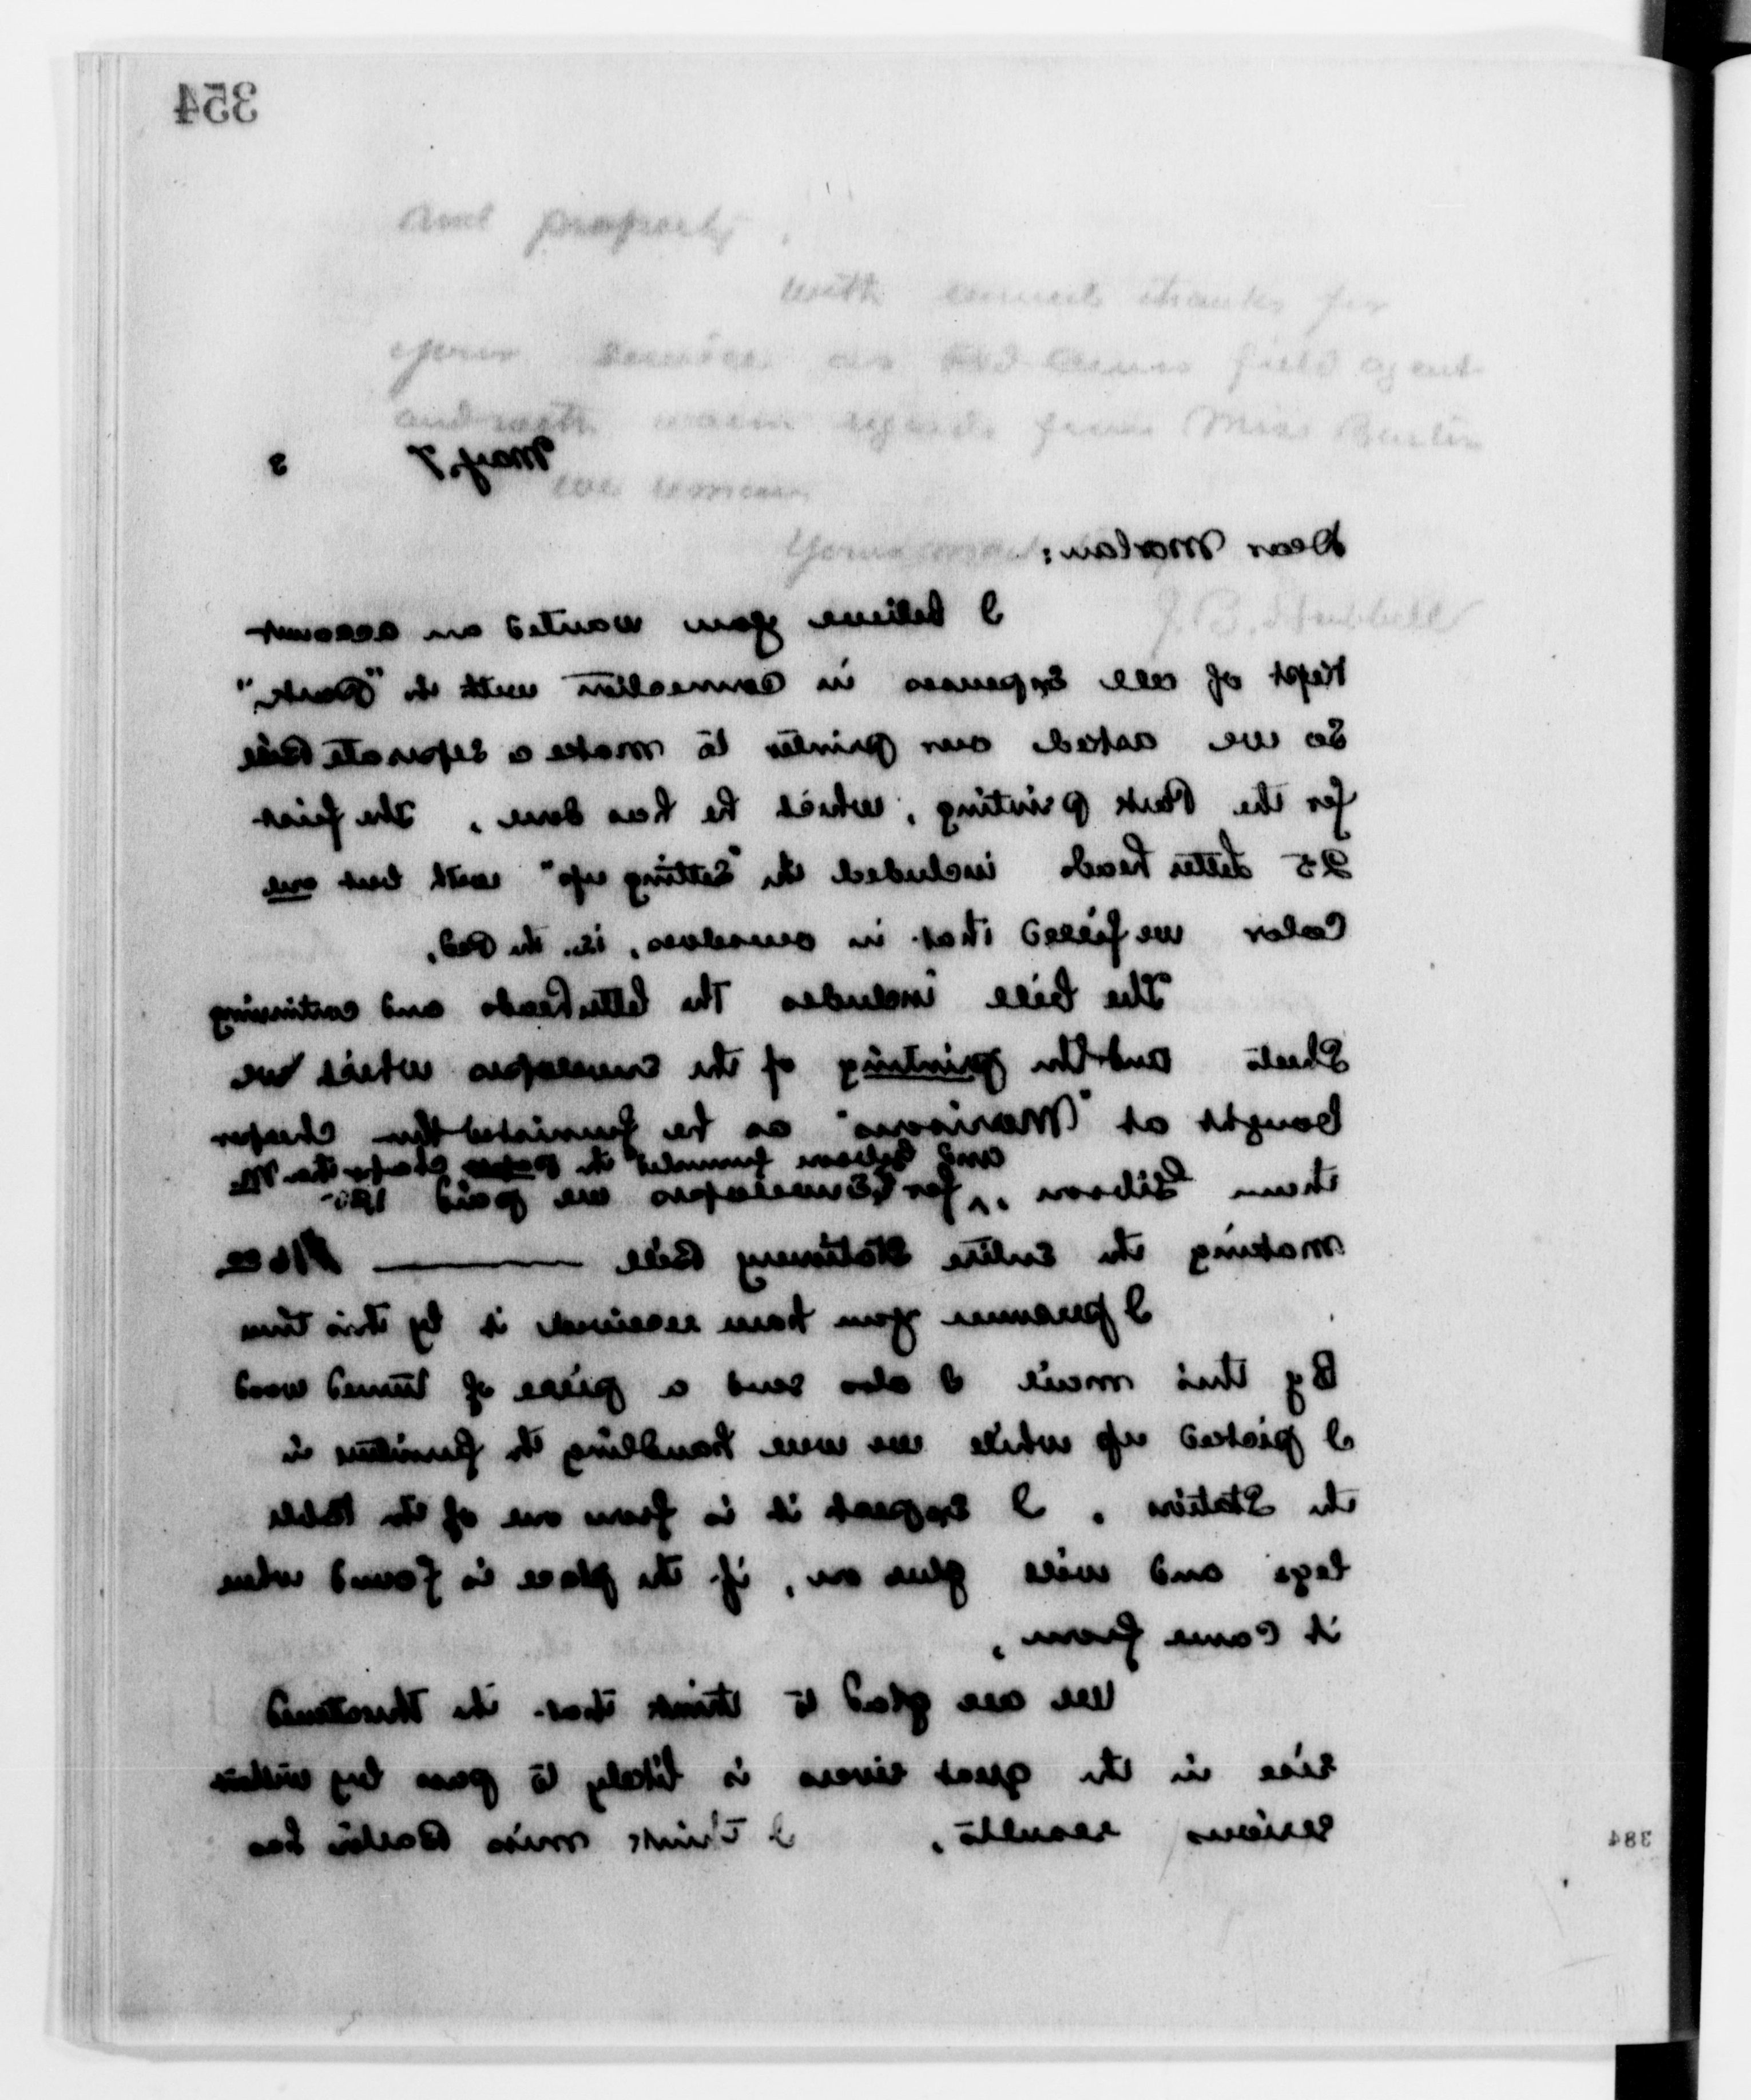 354
and property.
with earnest thanks for
your service as Red Cross field agent
and with warm regards from Miss Barton
May 7 3
Yours
J. B. Hubbell
Dear Marlan:
I believe you wanted an account
kept of all expenses in connection with the "Park"
so we asked our printer to make a separate Bill
for the Park printing, which he has done. The first
25 letter heads included the "setting up" with but one
Color we filled that in ourselves, i.e. the Red.
The bill includes the letterheads and continuing
Sheets and the printing of the envelopes which we
bought at "Morrisons" as he furnished them cheaper
than Gibson, and Gibson furnished the paper cheaper than M.
for Envelopes we paid
making the entire Stationery Bill ———
I presume you have received it by this time
By this mail I also send a piece of turned wood
I picked up while we were handling the furniture in
the Station. I expect it is from one of the table
legs and will glue on, if the place is found where
it came from.
We are glad to think that the threatened
rise in the great rivers is likely to pass by without
serious results. I think miss Barton has
384